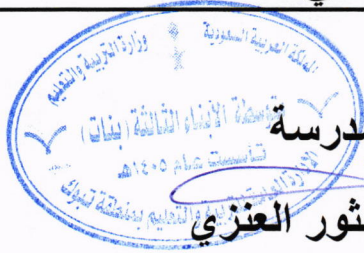 ي
المملكة العربية السعودية
وزارة التربية والتعليم
متوسطة الأبناء الثالثة (بنات)
تأسست عام ١٤٠٥هـ
والتعليم بمنطقة تبوك
درسة
ثور العنزي